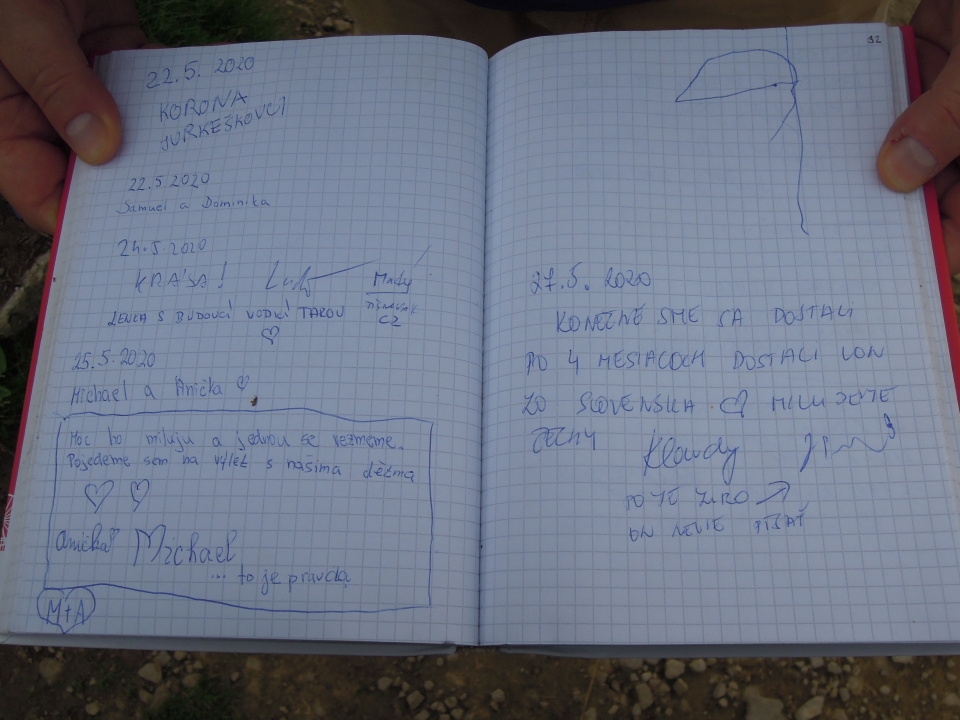 22.5. 2020
KORONA
JURKEŠKOVCI
22.5.2020
Samuel a Dominika
24.5.2020
KRÁSA!
Mady
CZ
LENKA S BUDOUCÍ
25.5.2020
Michael a Anička ♡
Moc ho miluju a jednou se vezmeme.
Pojedeme sem na výlet s našima dětma
♡ ♡
Anička Michael
... to je pravda
M+A
32
27.5. 2020
KONEČNE SME SA DOSTALI
PO 4 MESIACOCH DOSTALI VON
ZO SLOVENSKA. ♡ MILUJEME
ČECHY Klaudy
TO JE
ON NEVIE PÍSAŤ